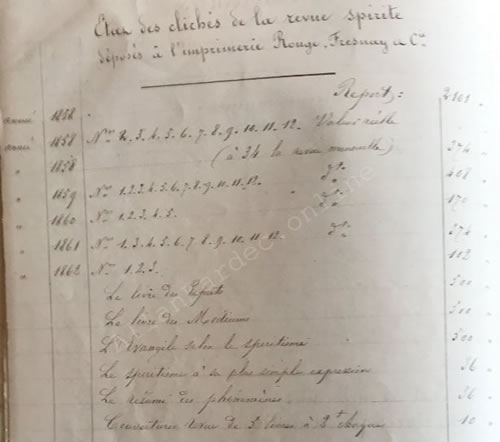 Etat des clichés de la revue spirite
déposés à l'imprimerie Rouge, Fresnay & Cie
Report: 2101
1858
1858 Nos 2. 3. 4. 5. 6. 7. 8. 9. 10. 11. 12. Valeur réelle
1858 (à 34 la revue mensuelle) 374
1859 Nos 1. 2. 3. 4. 5. 6. 7. 8. 9. 10. 11. 12. " do 408
1860 Nos 1. 2. 3. 4. 5. " do 170
1861 Nos 1. 3. 4. 5. 6. 7. 8. 9. 10. 11. 12. do 374
1862 Nos 1. 2. 3. 102
Le livre des Esprits 500
Le livre des Médiums 500
L'Evangile selon le spiritisme 500
Le spiritisme à sa plus simple expression 36
Le résumé des phénomènes 36
Couvertures de 3 livres à 10